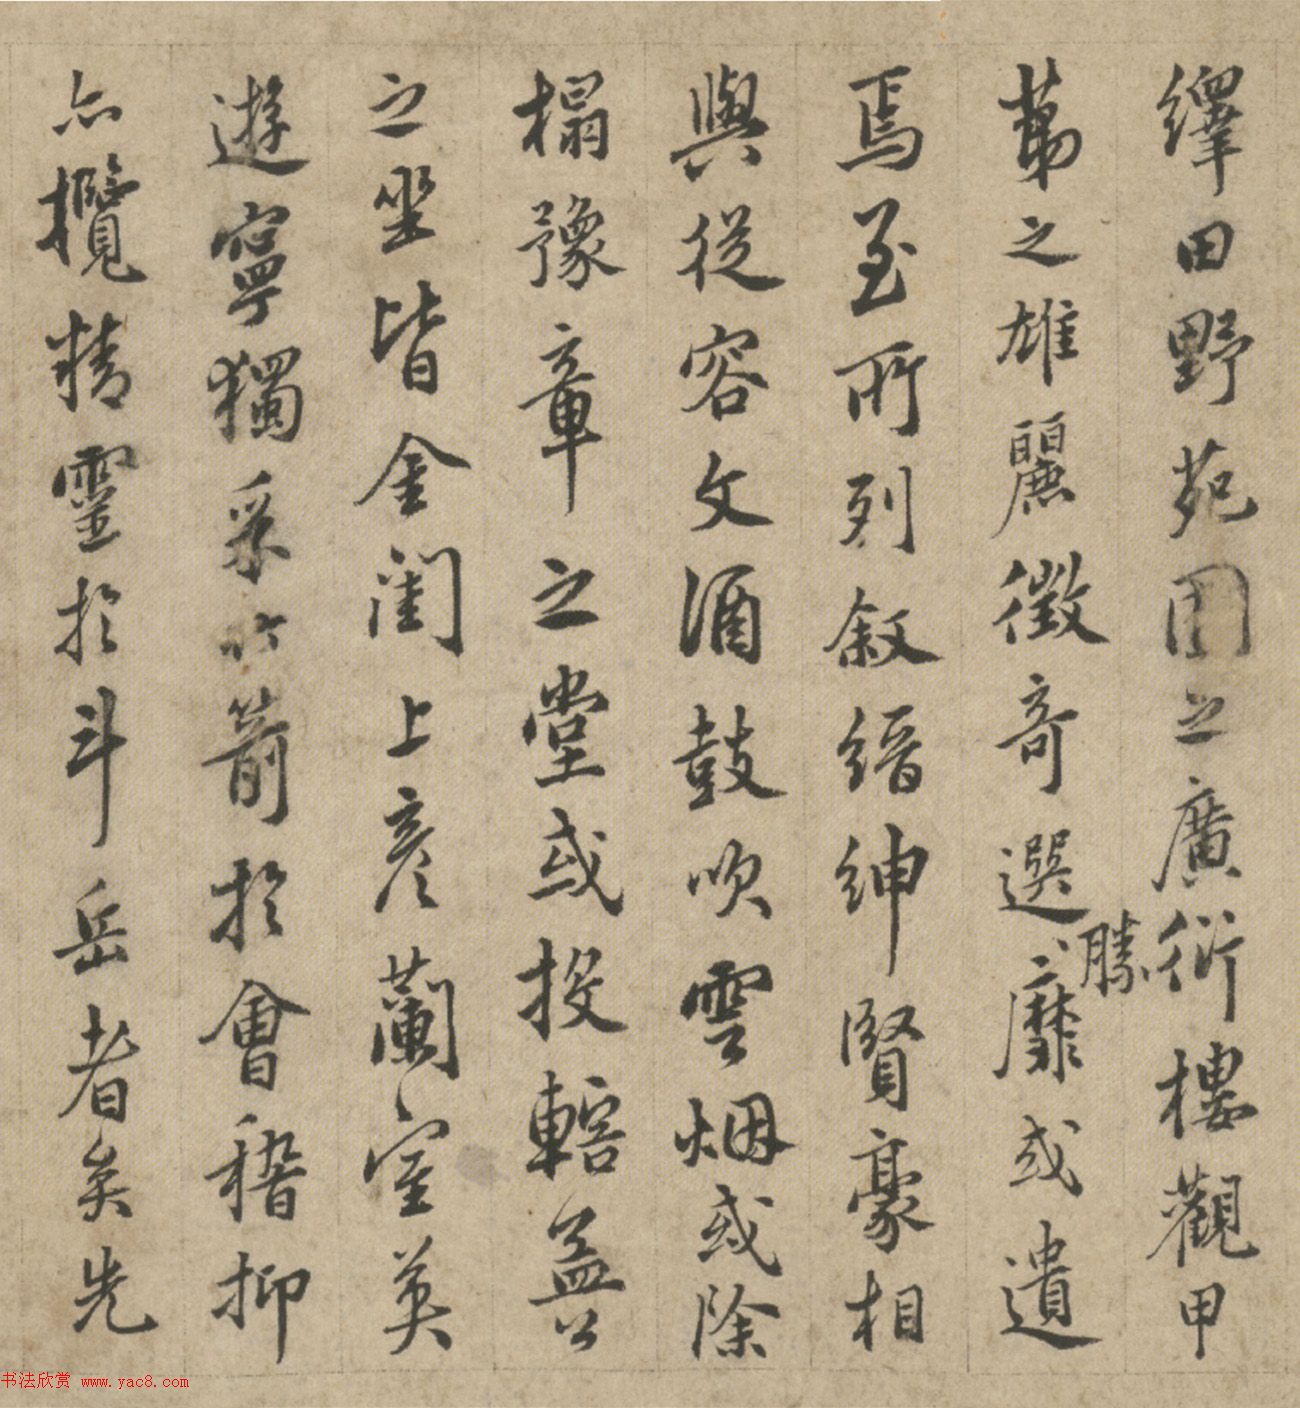 繹田野苑囿之廣衍樓觀甲
苐之雄麗徵奇選勝靡或遺
焉至所列叙縉紳賢豪相
與從容文酒鼓吹雲烟或除
榻豫章之堂或投轄益公
之坐皆金閨上彥蘭室英
遊寧獨采竹箭於會稽抑
亦攬精靈於斗岳者矣先
书法欣赏 www.yac8.com